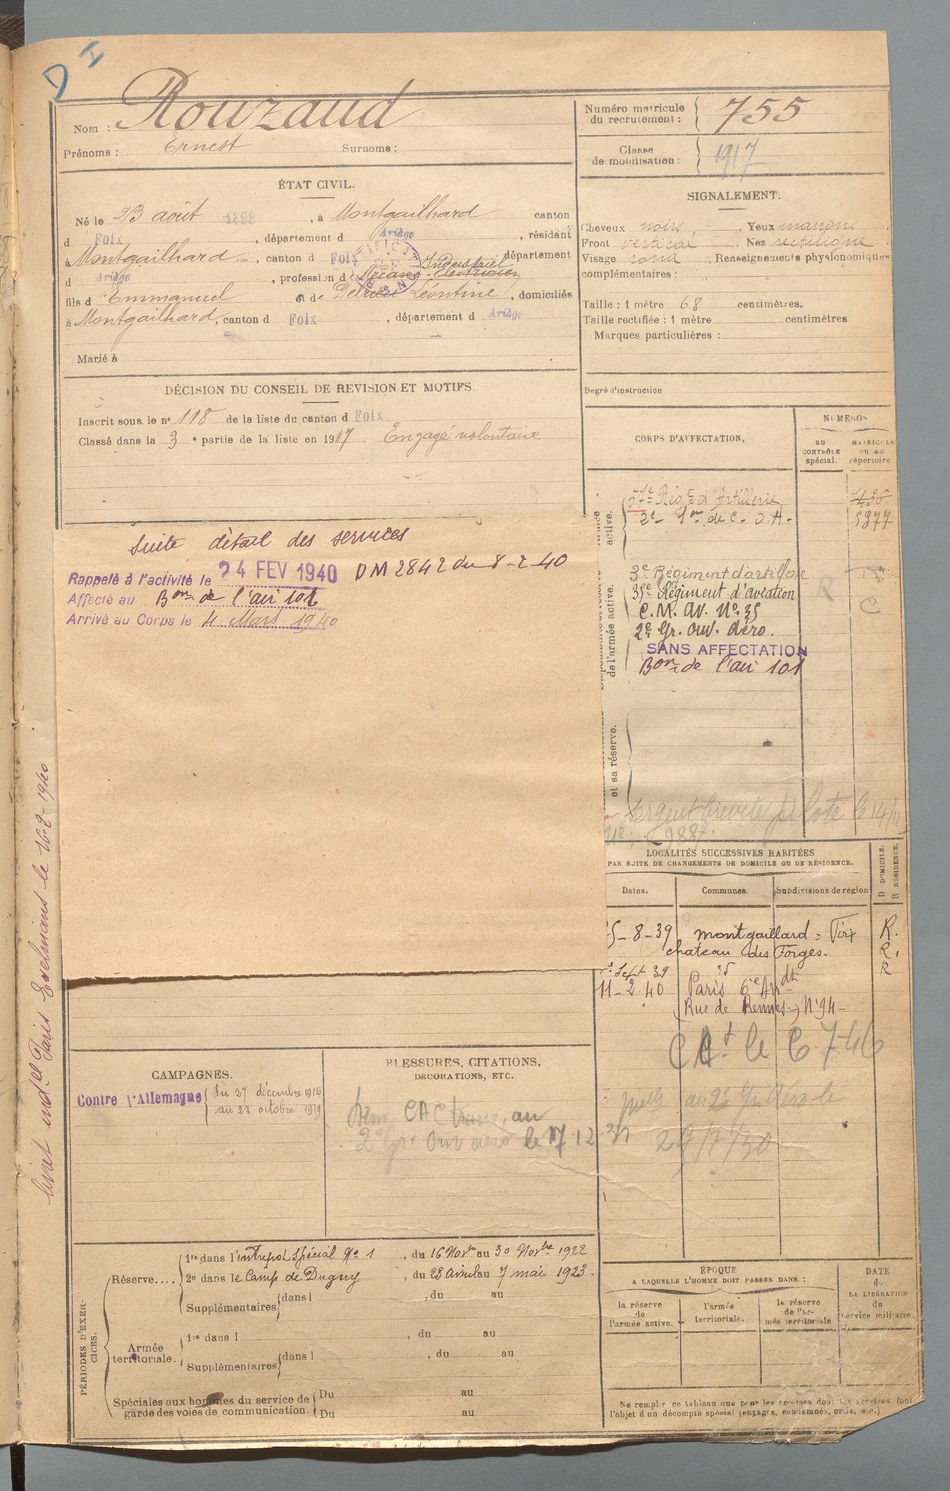 D I
Nom : Rouzaud
Prénoms : Ernest Surnoms :
Numéro matricule du recrutement : 755
Classe de mobilisation : 1917
ÉTAT CIVIL.
Né le 23 août , à Montgailhard canton
d Foix , département d Ariège , résidant
à Montgailhard , canton d Foix , département
d Ariège , profession d Mécano-Electricien Industriel
fils d Emmanuel et de Léontine , domiciliés
à Montgailhard, canton d Foix , département d Ariège
Marié à
SIGNALEMENT.
Cheveux noirs Yeux marrons
Front vertical Nez rectiligne
Visage rond , Renseignements physionomiques
complémentaires :
Taille : 1 mètre 68 centimètres.
Taille rectifiée : 1 mètre centimètres
Marques particulières :
Degré d'instruction
DÉCISION DU CONSEIL DE REVISION ET MOTIFS.
Inscrit sous le n° 118 de la liste du canton d Foix
Classé dans la 3e partie de la liste en 1917. Engagé volontaire
CORPS D'AFFECTATION.
NUMÉROS
au CONTRÔLE spécial.
MATRICULE OU AU répertoire
active.
Régt d'Artillerie
2e de C. O. A.
5877
de l'armée active.
3e Régiment d'artillerie
35e Régiment d'aviation
C. M. Av. No 35
2e Gr. Ouv. Aéro.
SANS AFFECTATION
Bon de l'air 101
R
C
et sa réserve.
Sergent breveté pilote le
Suite détail des services
Rappelé à l'activité le 24 FEV 1940 DM 2842 du 8-2 40
Affecté au Bon de l'air 101
Arrivé au Corps le 4 Mars 1940
Livret indel Paris Exelmans le 16-2-1940
LOCALITÉS SUCCESSIVES HABITÉES
PAR SUITE DE CHANGEMENTS DE DOMICILE OU DE RÉSIDENCE.
D DOMICILE. R RÉSIDENCE.
Dates. Communes. Subdivisions de région
5-8-39 Montgaillard = Foix R.
chateau des Forges. R.
Sept 39 R
11-2 40 Paris 6e Arrdt
Rue de Rennes, No 94
le 6 7-46
29/7/30
CAMPAGNES.
Contre l'Allemagne
du 27 décembre 1916
au 23 octobre 1919
BLESSURES, CITATIONS,
DÉCORATIONS, ETC.
CAC au
2e Gr. Ouv aéro le 17 12 31
PÉRIODES D'EXERCICES.
Réserve....
1re dans l'entrepôt Spécial No 1 , du 16 Novbre au 30 Novbre 1922
2e dans le Camp de Dugny , du 23 Avril au 7 mai 1923.
Supplémentaires dans l , du au
Armée territoriale.
1re dans l , du au
Supplémentaires dans l , du au
Spéciales aux hommes du service de garde des voies de communication.
Du au
Du au
ÉPOQUE
A LAQUELLE L'HOMME DOIT PASSER DANS :
la réserve de l'armée active.
l'armée territoriale.
la réserve de l'armée territoriale
DATE de LA LIBÉRATION du service militaire.
Ne remplir ce tableau que pour les hommes dont les services font
l'objet d'un décompte spécial (engagés, condamnés, omis, etc.)